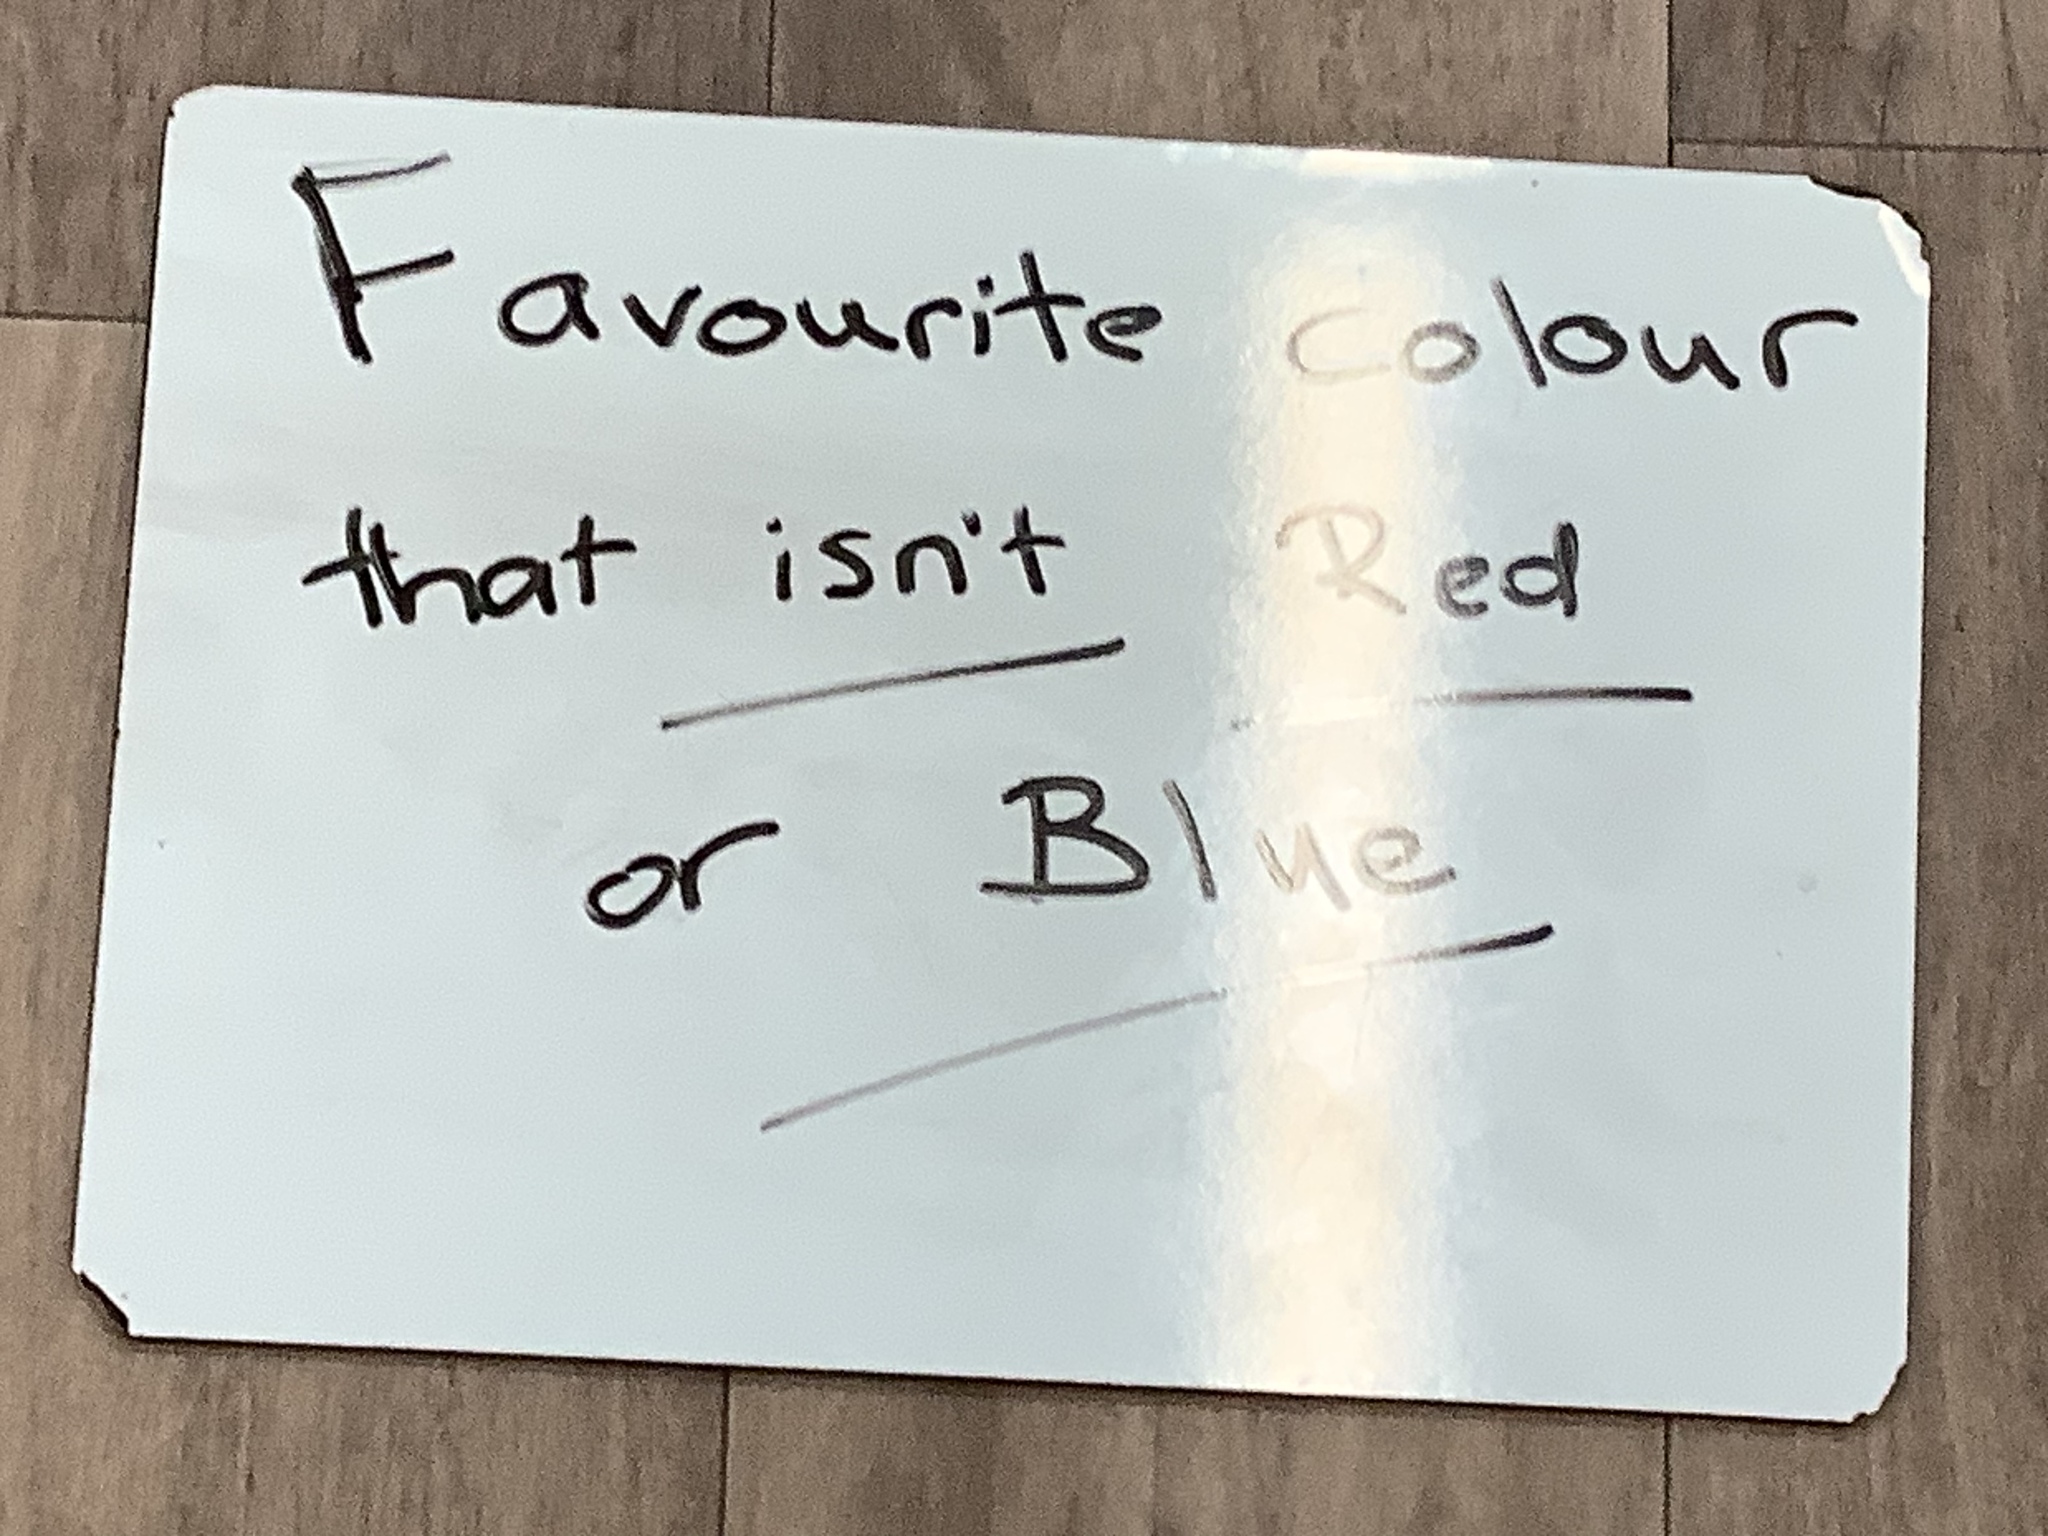 Favourite colour
that isn't Red
or Blue